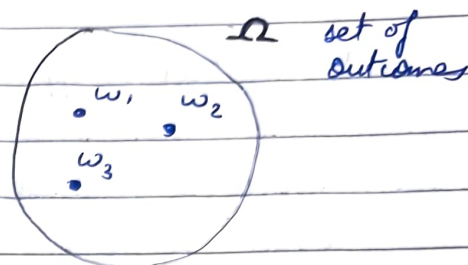 Ω set of
outcomes
ω₁ ω₂
ω₃